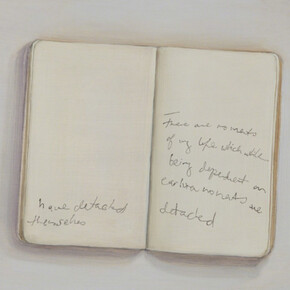 have detached
themselves
There are moments
of my life which
being dependent on
certain moments
detached